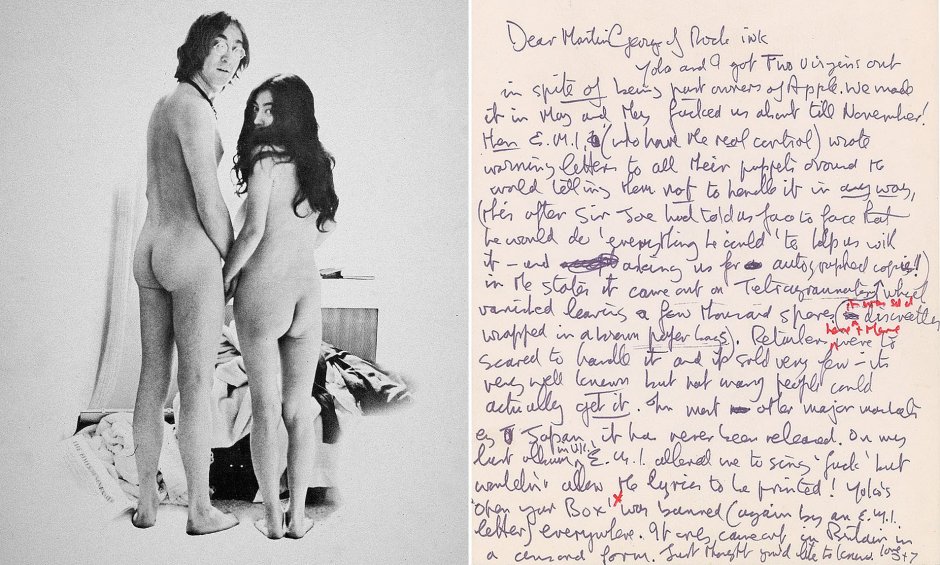 Dear Martin George of Rock ink
Yoko and I got Two Virgins out
in spite of being part owners of Apple. We made
it in May and they fucked us about till November!
Then E.M.I. (who have the real control) wrote
warning letters to all their puppets around the
world telling them not to handle it in any way,
(this after Sir Joe had told us face to face that
he would do 'everything he could' to help us with
it – and asking us for autographed copies!!)
in the states it came out on Tetragrammaton (which
vanished leaving a few thousand spare,
it was sold
discreetly
here + there
wrapped in a brown paper bags). Retailers were to
scared to handle it and it sold very few – its
very well known but not many people could
actually get it. In most other major markets
eg Japan, it has never been released. On my
in U.K.
last album, E.M.I. allowed me to sing 'fuck' but
wouldn't allow the lyrics to be printed! Yoko's
'open your Box' x was banned (again by an E.M.I.
letter) everywhere. It only came out in Britain in
a censored form. Just thought you'd like to know. love